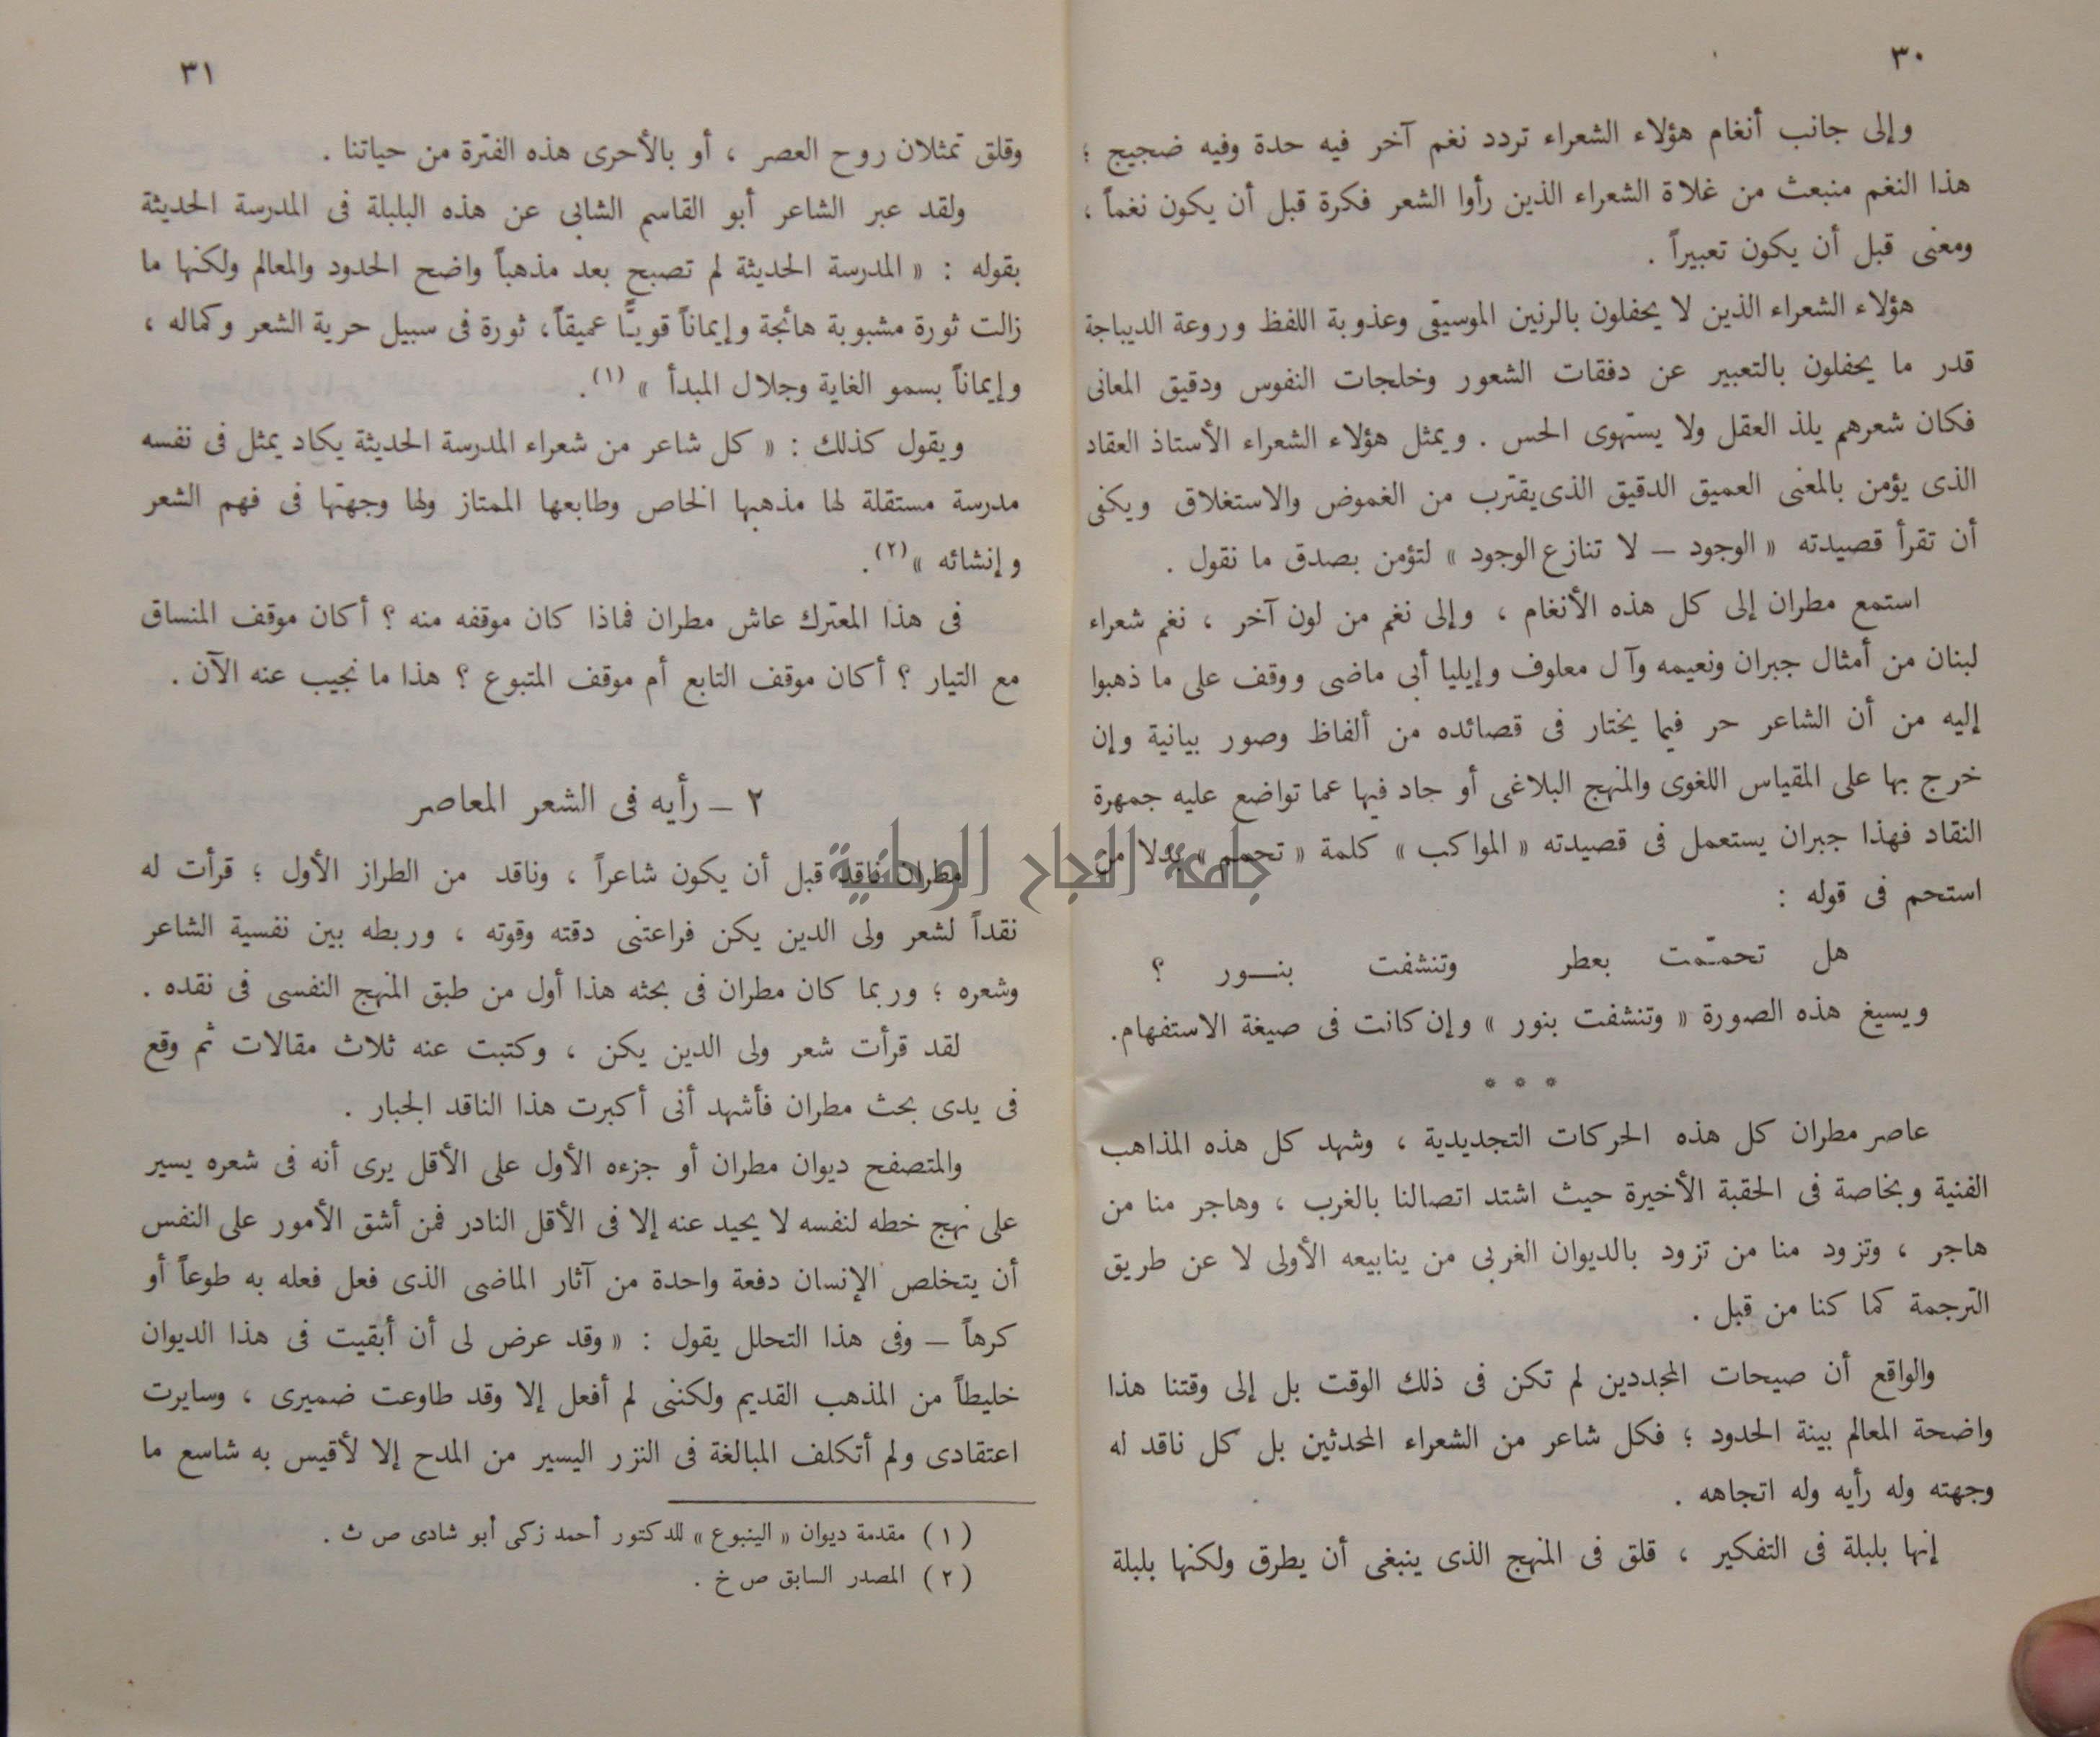 ٣٠
وإلى جانب أنغام هؤلاء الشعراء تردد نغم آخر فيه حدة وفيه ضجيج ؛
هذا النغم منبعث من غلاة الشعراء الذين رأوا الشعر فكرة قبل أن يكون نغماً ،
ومعنى قبل أن يكون تعبيراً .
هؤلاء الشعراء الذين لا يحفلون بالرنين الموسيقى وعذوبة اللفظ وروعة الديباجة
قدر ما يحفلون بالتعبير عن دفقات الشعور وخلجات النفوس ودقيق المعانى
فكان شعرهم يلذ العقل ولا يستهوى الحس . ويمثل هؤلاء الشعراء الأستاذ العقاد
الذى يؤمن بالمعنى العميق الدقيق الذى يقترب من الغموض والاستغلاق ويكفى
أن تقرأ قصيدته « الوجود – لا تنازع الوجود » لتؤمن بصدق ما نقول .
استمع مطران إلى كل هذه الأنغام ، وإلى نغم من لون آخر ، نغم شعراء
لبنان من أمثال جبران ونعيمه وآل معلوف وإيليا أبى ماضى ووقف على ما ذهبوا
إليه من أن الشاعر حر فيما يختار فى قصائده من ألفاظ وصور بيانية وإن
خرج بها على المقياس اللغوى والمنهج البلاغى أو جاد فيها عما تواضع عليه جمهرة
النقاد فهذا جبران يستعمل فى قصيدته « المواكب » كلمة « تحمم » بدلا من
استحم فى قوله :
هل تحممت بعطر وتنشفت بنور ؟
ويسيغ هذه الصورة « وتنشفت بنور » وإن كانت فى صيغة الاستفهام.
* * *
عاصر مطران كل هذه الحركات التجديدية ، وشهد كل هذه المذاهب
الفنية وبخاصة فى الحقبة الأخيرة حيث اشتد اتصالنا بالغرب ، وهاجر منا من
هاجر ، وتزود منا من تزود بالديوان الغربى من ينابيعه الأولى لا عن طريق
الترجمة كما كنا من قبل .
والواقع أن صيحات المجددين لم تكن فى ذلك الوقت بل إلى وقتنا هذا
واضحة المعالم بينة الحدود ؛ فكل شاعر من الشعراء المحدثين بل كل ناقد له
وجهته وله رأيه وله اتجاهه .
إنها بلبلة فى التفكير ، قلق فى المنهج الذى ينبغى أن يطرق ولكنها بلبلة
٣١
وقلق تمثلان روح العصر ، أو بالأحرى هذه الفترة من حياتنا .
ولقد عبر الشاعر أبو القاسم الشابى عن هذه البلبلة فى المدرسة الحديثة
بقوله : « المدرسة الحديثة لم تصبح بعد مذهباً واضح الحدود والمعالم ولكنها ما
زالت ثورة مشبوبة هائجة وإيماناً قويًّا عميقاً، ثورة فى سبيل حرية الشعر وكماله ،
وإيماناً بسمو الغاية وجلال المبدأ » (١).
ويقول كذلك : « كل شاعر من شعراء المدرسة الحديثة يكاد يمثل فى نفسه
مدرسة مستقلة لها مذهبها الخاص وطابعها الممتاز ولها وجهتها فى فهم الشعر
وإنشائه » (٢).
فى هذا المعترك عاش مطران فماذا كان موقفه منه ؟ أكان موقف المنساق
مع التيار ؟ أكان موقف التابع أم موقف المتبوع ؟ هذا ما نجيب عنه الآن .
٢ – رأيه فى الشعر المعاصر
جامعة النجاح الوطنية
مطران ناقد قبل أن يكون شاعراً ، وناقد من الطراز الأول ؛ قرأت له
نقداً لشعر ولى الدين يكن فراعتنى دقته وقوته ، وربطه بين نفسية الشاعر
وشعره ؛ وربما كان مطران فى بحثه هذا أول من طبق المنهج النفسى فى نقده .
لقد قرأت شعر ولى الدين يكن ، وكتبت عنه ثلاث مقالات ثم وقع
فى يدى بحث مطران فأشهد أنى أكبرت هذا الناقد الجبار .
والمتصفح ديوان مطران أو جزءه الأول على الأقل يرى أنه فى شعره يسير
على نهج خطه لنفسه لا يحيد عنه إلا فى الأقل النادر فمن أشق الأمور على النفس
أن يتخلص الإنسان دفعة واحدة من آثار الماضى الذى فعل فعله به طوعاً أو
كرهاً – وفى هذا التحلل يقول : « وقد عرض لى أن أبقيت فى هذا الديوان
خليطاً من المذهب القديم ولكننى لم أفعل إلا وقد طاوعت ضميرى ، وسايرت
اعتقادى ولم أتكلف المبالغة فى النزر اليسير من المدح إلا لأقيس به شاسع ما
(١) مقدمة ديوان « الينبوع » للدكتور أحمد زكى أبو شادى ص ث .
(٢) المصدر السابق ص خ .